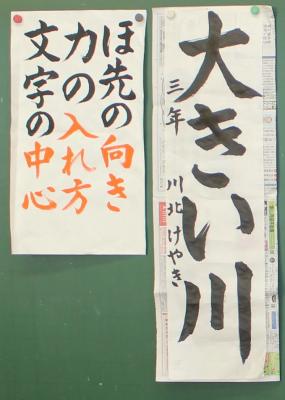 大きい川
三年 川北けやき
ほ先の向き
力の入れ方
文字の中心